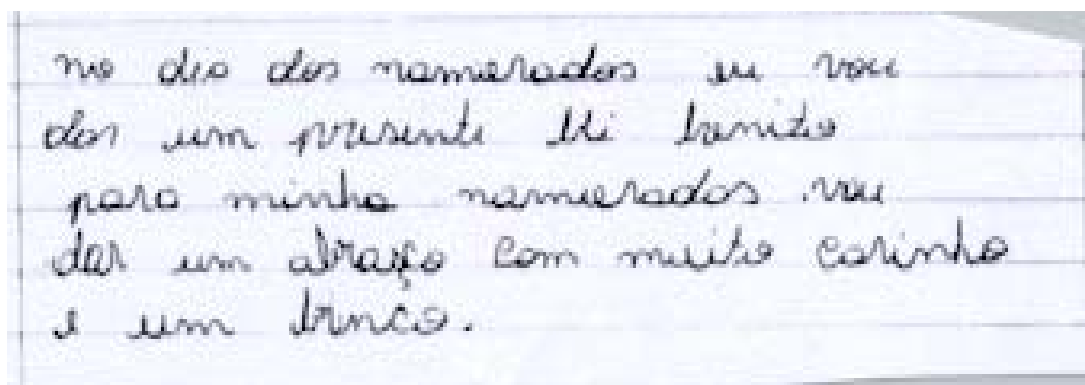 no dia dos namerados eu vou
dar um presente bonito
para minha namerados vou
dar um abraço com muito carinho
e um brinco.